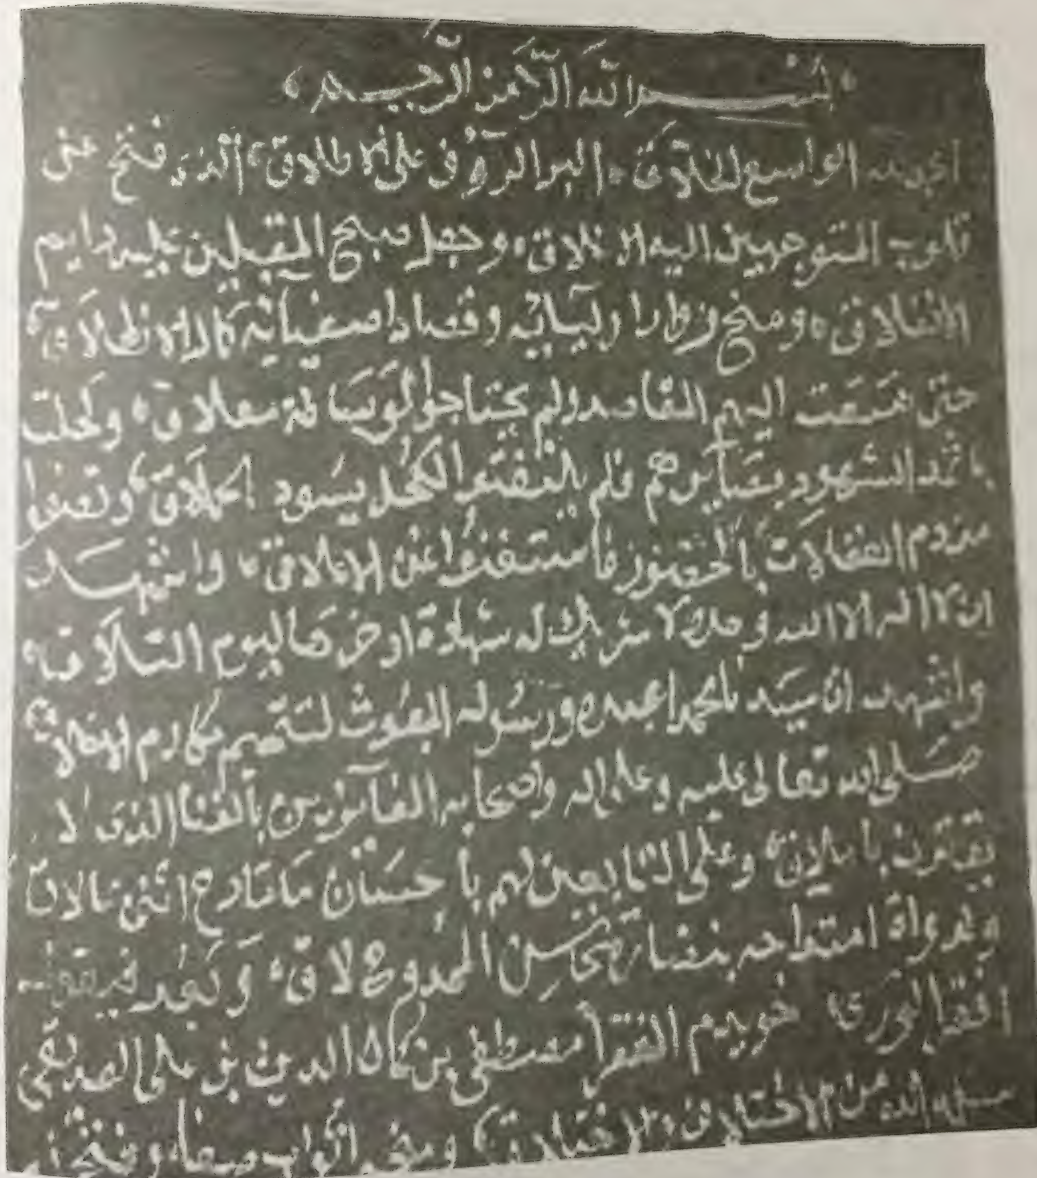 بسم الله الرحمن الرحيم
الحمد لله الواسع الخلاق البر الرؤف على الاطلاق الذي فتح عن
قلوب المتوجهين اليه الاغلاق وجعل صبح المقبلين عليه دايم
الانفلاق ومنح زوار اوليائه وقصاد اصفيائه كمال الانطلاق
حتى همعت اليهم المقاصد ولم يحتاجوا لوساطة معلاق وكحلت
باثمد الشهود بصايرهم فلم يلتفتوا لكحل يسود الحلاق
من دم الغفلات بالحضور فاستغنوا عن الاعلاق واشهد
ان لا اله الا الله وحده لا شريك له شهادة ادخرها ليوم التلاق
واشهد ان سيدنا محمدا عبده ورسوله المبعوث لتتميم مكارم الاخلاق
صلى الله تعالى عليه وعلى اله واصحابه الفائزين بالغنا الذي لا
يقترن باملاق وعلى التابعين لهم باحسان ما مادح اثنى
امتداحه بمحاسن الممدوح لاق وبعد فيقول
افقر الورى خويدم الفقرا مصطفى بن كمال الدين بن علي الصديقي
من الاختلاق ومنحه اثواب صفا